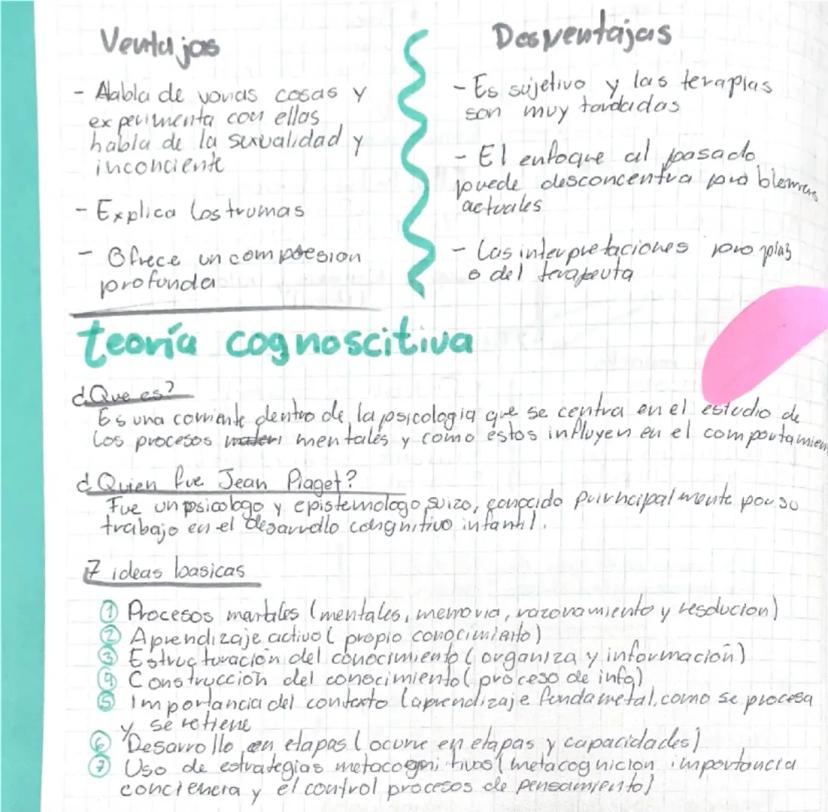 Ventajas
- Habla de varias cosas y
experimenta con ellas
habla de la sexualidad y
inconciente
- Explica los trumas
- Ofrece un compresion
profunda
Desventajas
- Es sujetivo y las terapias
son muy tardadas
- El enfoque al pasado
puede desconcentra problemas
actuales
- Las interpretaciones propias
o del terapeuta
teoría cognoscitiva
¿Que es?
Es una corriente dentro de la psicologia que se centra en el estudio de
los procesos mentales y como estos influyen en el comportamien
¿Quien fue Jean Piaget?
Fue un psicologo y epistemologo suizo, conocido principalmente por su
trabajo en el desarrollo congnitivo infantil.
7 ideas basicas
① Procesos mentales (mentales, memoria, razonamiento y resolucion)
② Aprendizaje activo (propio conocimiento)
③ Estructuración del conocimiento (organiza y información)
④ Construcción del conocimiento (proceso de info)
⑤ Importancia del contexto (aprendizaje fundametal, como se procesa
y se retiene
⑥ Desarrollo en etapas (ocurre en etapas y capacidades)
⑦ Uso de estrategias metacognitivas (metacognicion importancia
conciencia y el control procesos de pensamiento)